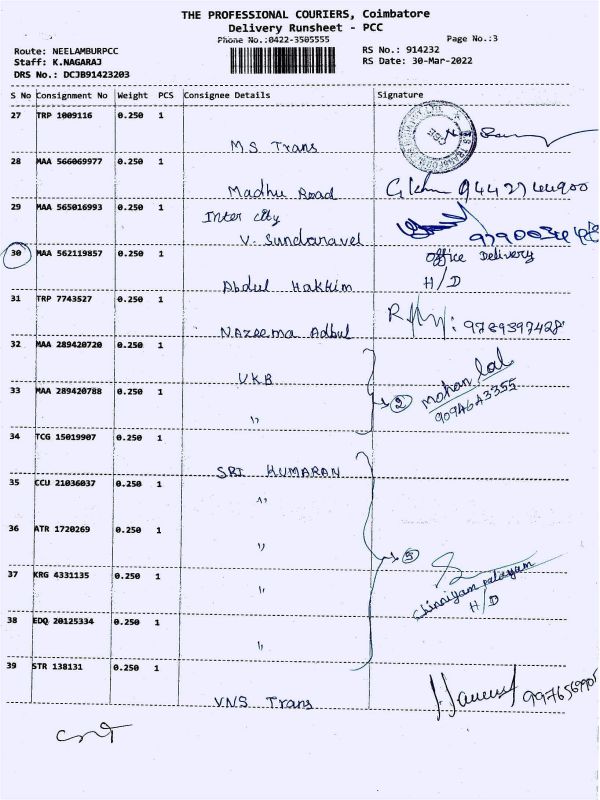 THE PROFESSIONAL COURIERS, Coimbatore
Delivery Runsheet - PCC
Phone No.:0422-3505555
Page No.:3
Route: NEELAMBURPCC
RS No.: 914232
Staff: K.NAGARAJ
RS Date: 30-Mar-2022
DRS No.: DCJB91423203
S No Consignment No Weight PCS Consignee Details Signature
27 TRP 1009116 0.250 1
M.S Trans
28 MAA 566069977 0.250 1
Madhu Road
29 MAA 565016993 0.250 1 Inter city
V. Sundaravel
30 MAA 562119857 0.250 1 Office Delivery
H/D
Abdul Hakkim
31 TRP 7743527 0.250 1
: 9789397428
Nazeema Adbul
32 MAA 289420720 0.250 1
VKB
mohan lal
33 MAA 289420788 0.250 1 2
9094643355
"
34 TCG 15019907 0.250 1
SRI KUMARAN
35 CCU 21036037 0.250 1
"
36 ATR 1720269 0.250 1
"
5
37 KRG 4331135 0.250 1
Chinniyam palayam
H/D
"
38 EDQ 20125334 0.250 1
"
39 STR 138131 0.250 1
VNS Trans